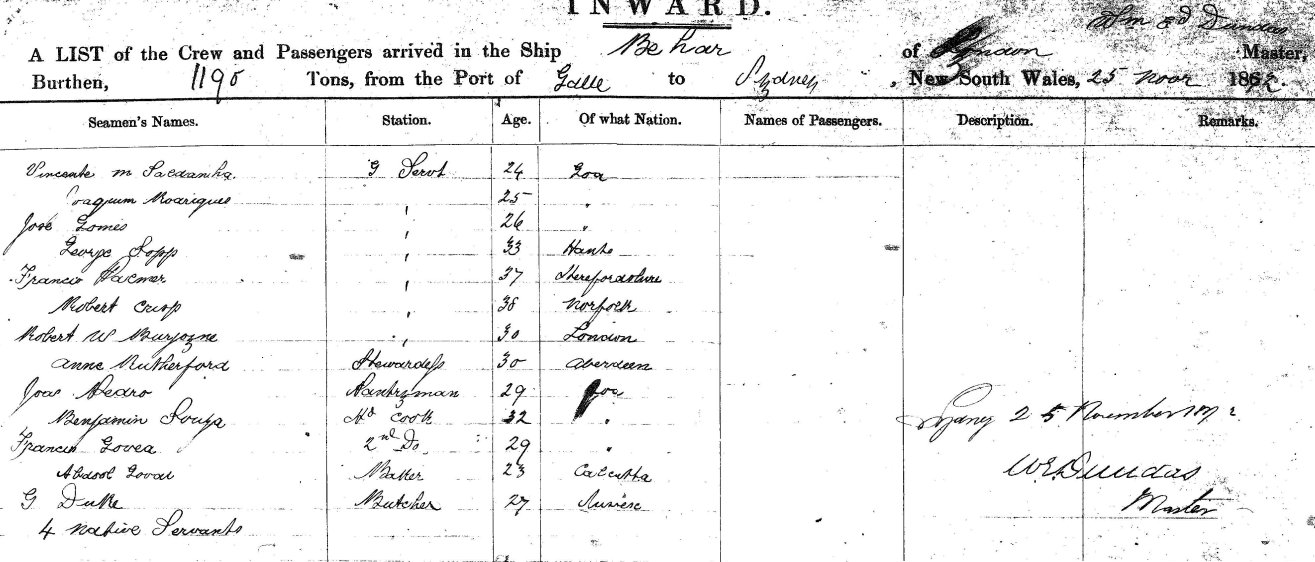 INWARD.
Wm Ed Dundas
A LIST of the Crew and Passengers arrived in the Ship Behar of London Master,
Burthen, 1190 Tons, from the Port of Galle to Sydney, New South Wales, 25 Novr 1872
Seamen's Names. Station. Age. Of what Nation. Names of Passengers. Description. Remarks.
Vincente M Saldanha G Servt 24 Goa
Joaquim Rodrigues " 25 "
José Gomes " 26 "
George Sopp " 33 Hants
Francis Palmer " 37 Herefordshire
Robert Crisp " 38 Norfolk
Robert W Burgoyne " 30 London
Anne Rutherford Stewardess 30 Aberdeen
Joao Pedro Pantryman 29 Goa
Benjamin Souza Hd Cook 32 "
Francis Govea 2nd Do 29 "
Abdool Baker 23 Calcutta
G Duke Butcher 27
4 Native Servants
Sydney 25 November 1872
W E Dundas
Master